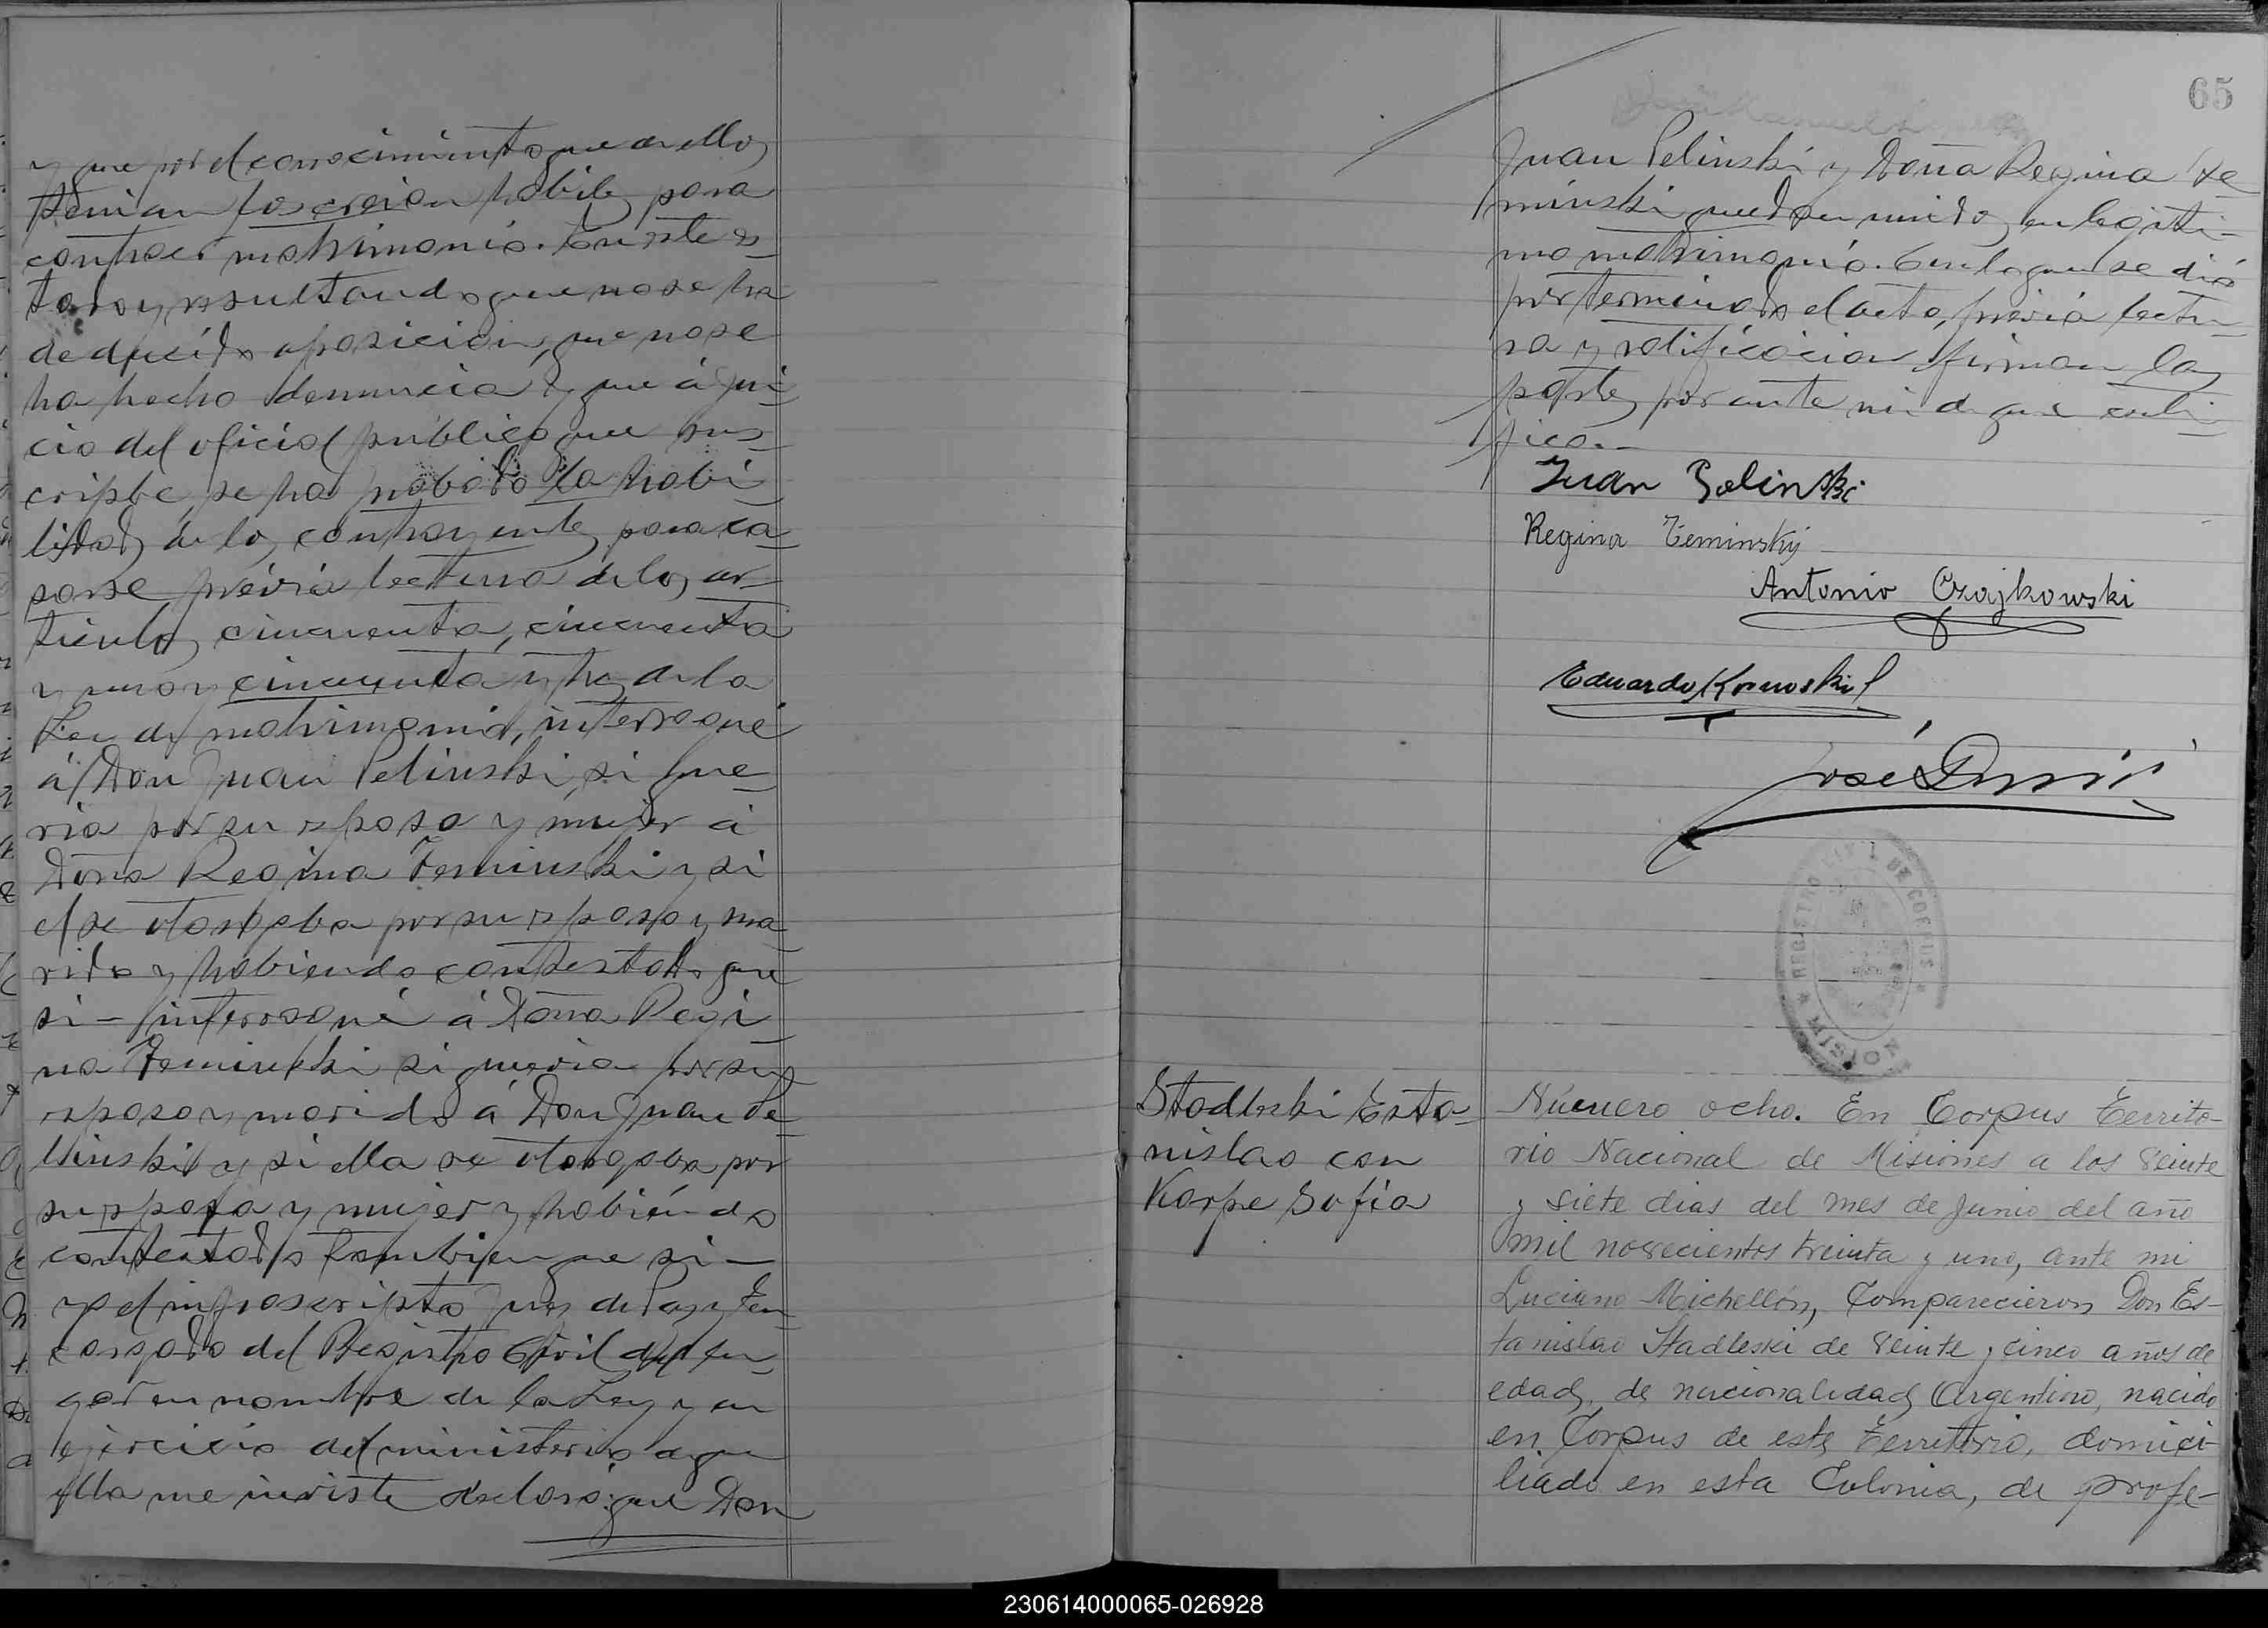 y que por el conocimiento que de ellos
tenian los creian habiles para
contraer matrimonio. En este es-
tado y resultando que no se ha
deducido oposicion, que no se
ha hecho denuncia y que á jui-
cio del oficial público que sus-
cripbe, se ha probado la habi-
lidad de los contrayentes para ca-
sarse, prévia lectura de los ar-
ticulos cincuenta, cincuenta
y uno y cincuenta y tres de la
Ley de matrimonio, interrogué
á Don Juan Pelinski, si que-
ria por su esposa y mujer á
Doña Regina Feminski y si
el se otorgaba por su esposo y ma-
rido y habiendo contestado que
si - interrogué á Doña Regi-
na Feminski si queria por su
esposo y marido á Don Juan Pe-
linski y si ella se otorgaba por
su esposa y mujer y habiendo
contestado tambien que si -
yo el infrascripto Juez de Paz y En-
cargado del Registro Civil del lu-
gar en nombre de la Ley y en
ejercicio del ministerio que
ella me inviste declaro: que Don
65
Juan Pelinski y Doña Regina Fe-
minski quedan unidos en legiti-
mo matrimonio. Con lo que se dió
por terminado el acto, prévia lectu-
ra y ratificacion firman las
partes por ante mi de que certi-
fico.-
Juan Pelinski
Regina Teminsky
Antonio Czajkowski
Eduardo
José
REGISTRO CIVIL DE CORPUS
MISIONES
Stadleski Esta-
nislao con
Karpe Sofia
Número ocho. En Corpus Territo-
rio Nacional de Misiones a los veinte
y siete dias del mes de Junio del año
mil novecientos treinta y uno, ante mi
Luciano Michellón, Comparecieron Don Es-
tanislao Stadleski de veinte y cinco años de
edad, de nacionalidad Argentino, nacido
en Corpus de este Territorio, domici-
liado en esta Colonia, de profe-
230614000065-026928